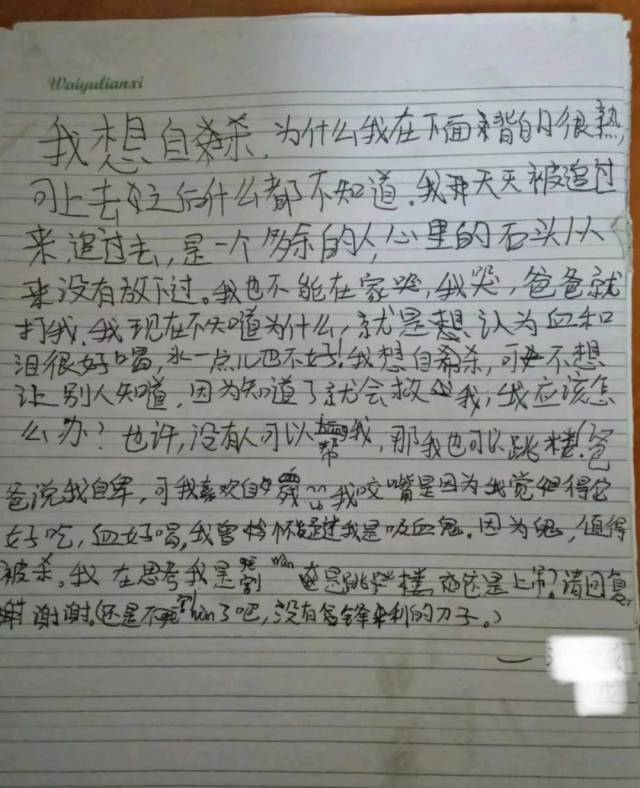 Waiyulianxi
我想自杀,为什么我在下面背的很熟,
可上去之后什么都不知道。我天天被追过
来,追过去,是一个多余的人,心里的石头从
来没有放下过。我也不能在家哭,我哭,爸爸就
打我,我现在不知道为什么,就是想认为血和
泪很好喝,水一点儿也不好!我想自杀,可又不想
让别人知道,因为知道了就会救我,我应该怎
么办?也许,没有人可以帮我,那我也可以跳楼!爸
爸说我自卑,可我喜欢自 我咬嘴是因为我觉得它
好吃,血好喝,我曾怀疑过我是吸血鬼。因为鬼,值得
被杀。我在思考我是割wàn 还是跳楼,还是上吊?请回复,
谢谢。(还是不割wàn了吧,没有锋利的刀子。)
一